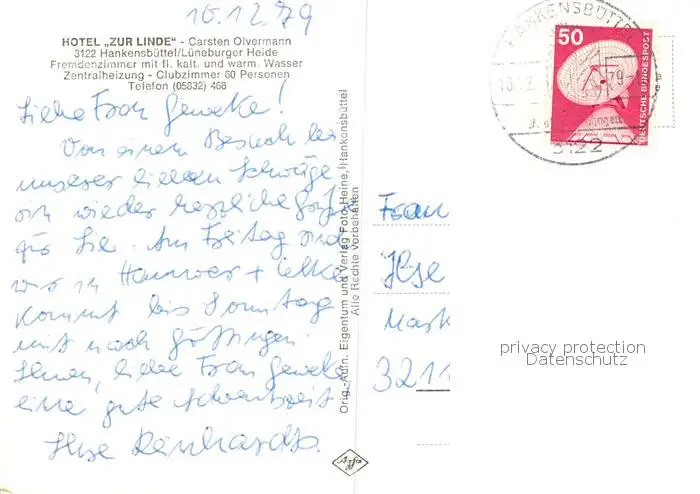 10.12.79
HOTEL „ZUR LINDE" - Carsten Olvermann
3122 Hankensbüttel/Lüneburger Heide
Fremdenzimmer mit fl. kalt. und warm. Wasser
Zentralheizung - Clubzimmer 60 Personen
Telefon (05832) 468
Liebe Frau Geweke!
Von einem Besuch bei
unserer lieben
wieder herzliche Grüße
für Sie. Am Freitag sind
wir in Hannover +
kommt bis Sonntag
mit nach Göttingen.
Ihnen, liebe Frau Geweke
eine gute Adventszeit
Ilse Reinhardt.
Orig.-Aufn. Eigentum und Verlag Foto-Heine, Hankensbüttel
Alle Rechte vorbehalten
Agfa
HANKENSBÜTTEL
10.12.79
3122
50
DEUTSCHE BUNDESPOST
Frau
Ilse
Mark
3211
privacy protection
Datenschutz